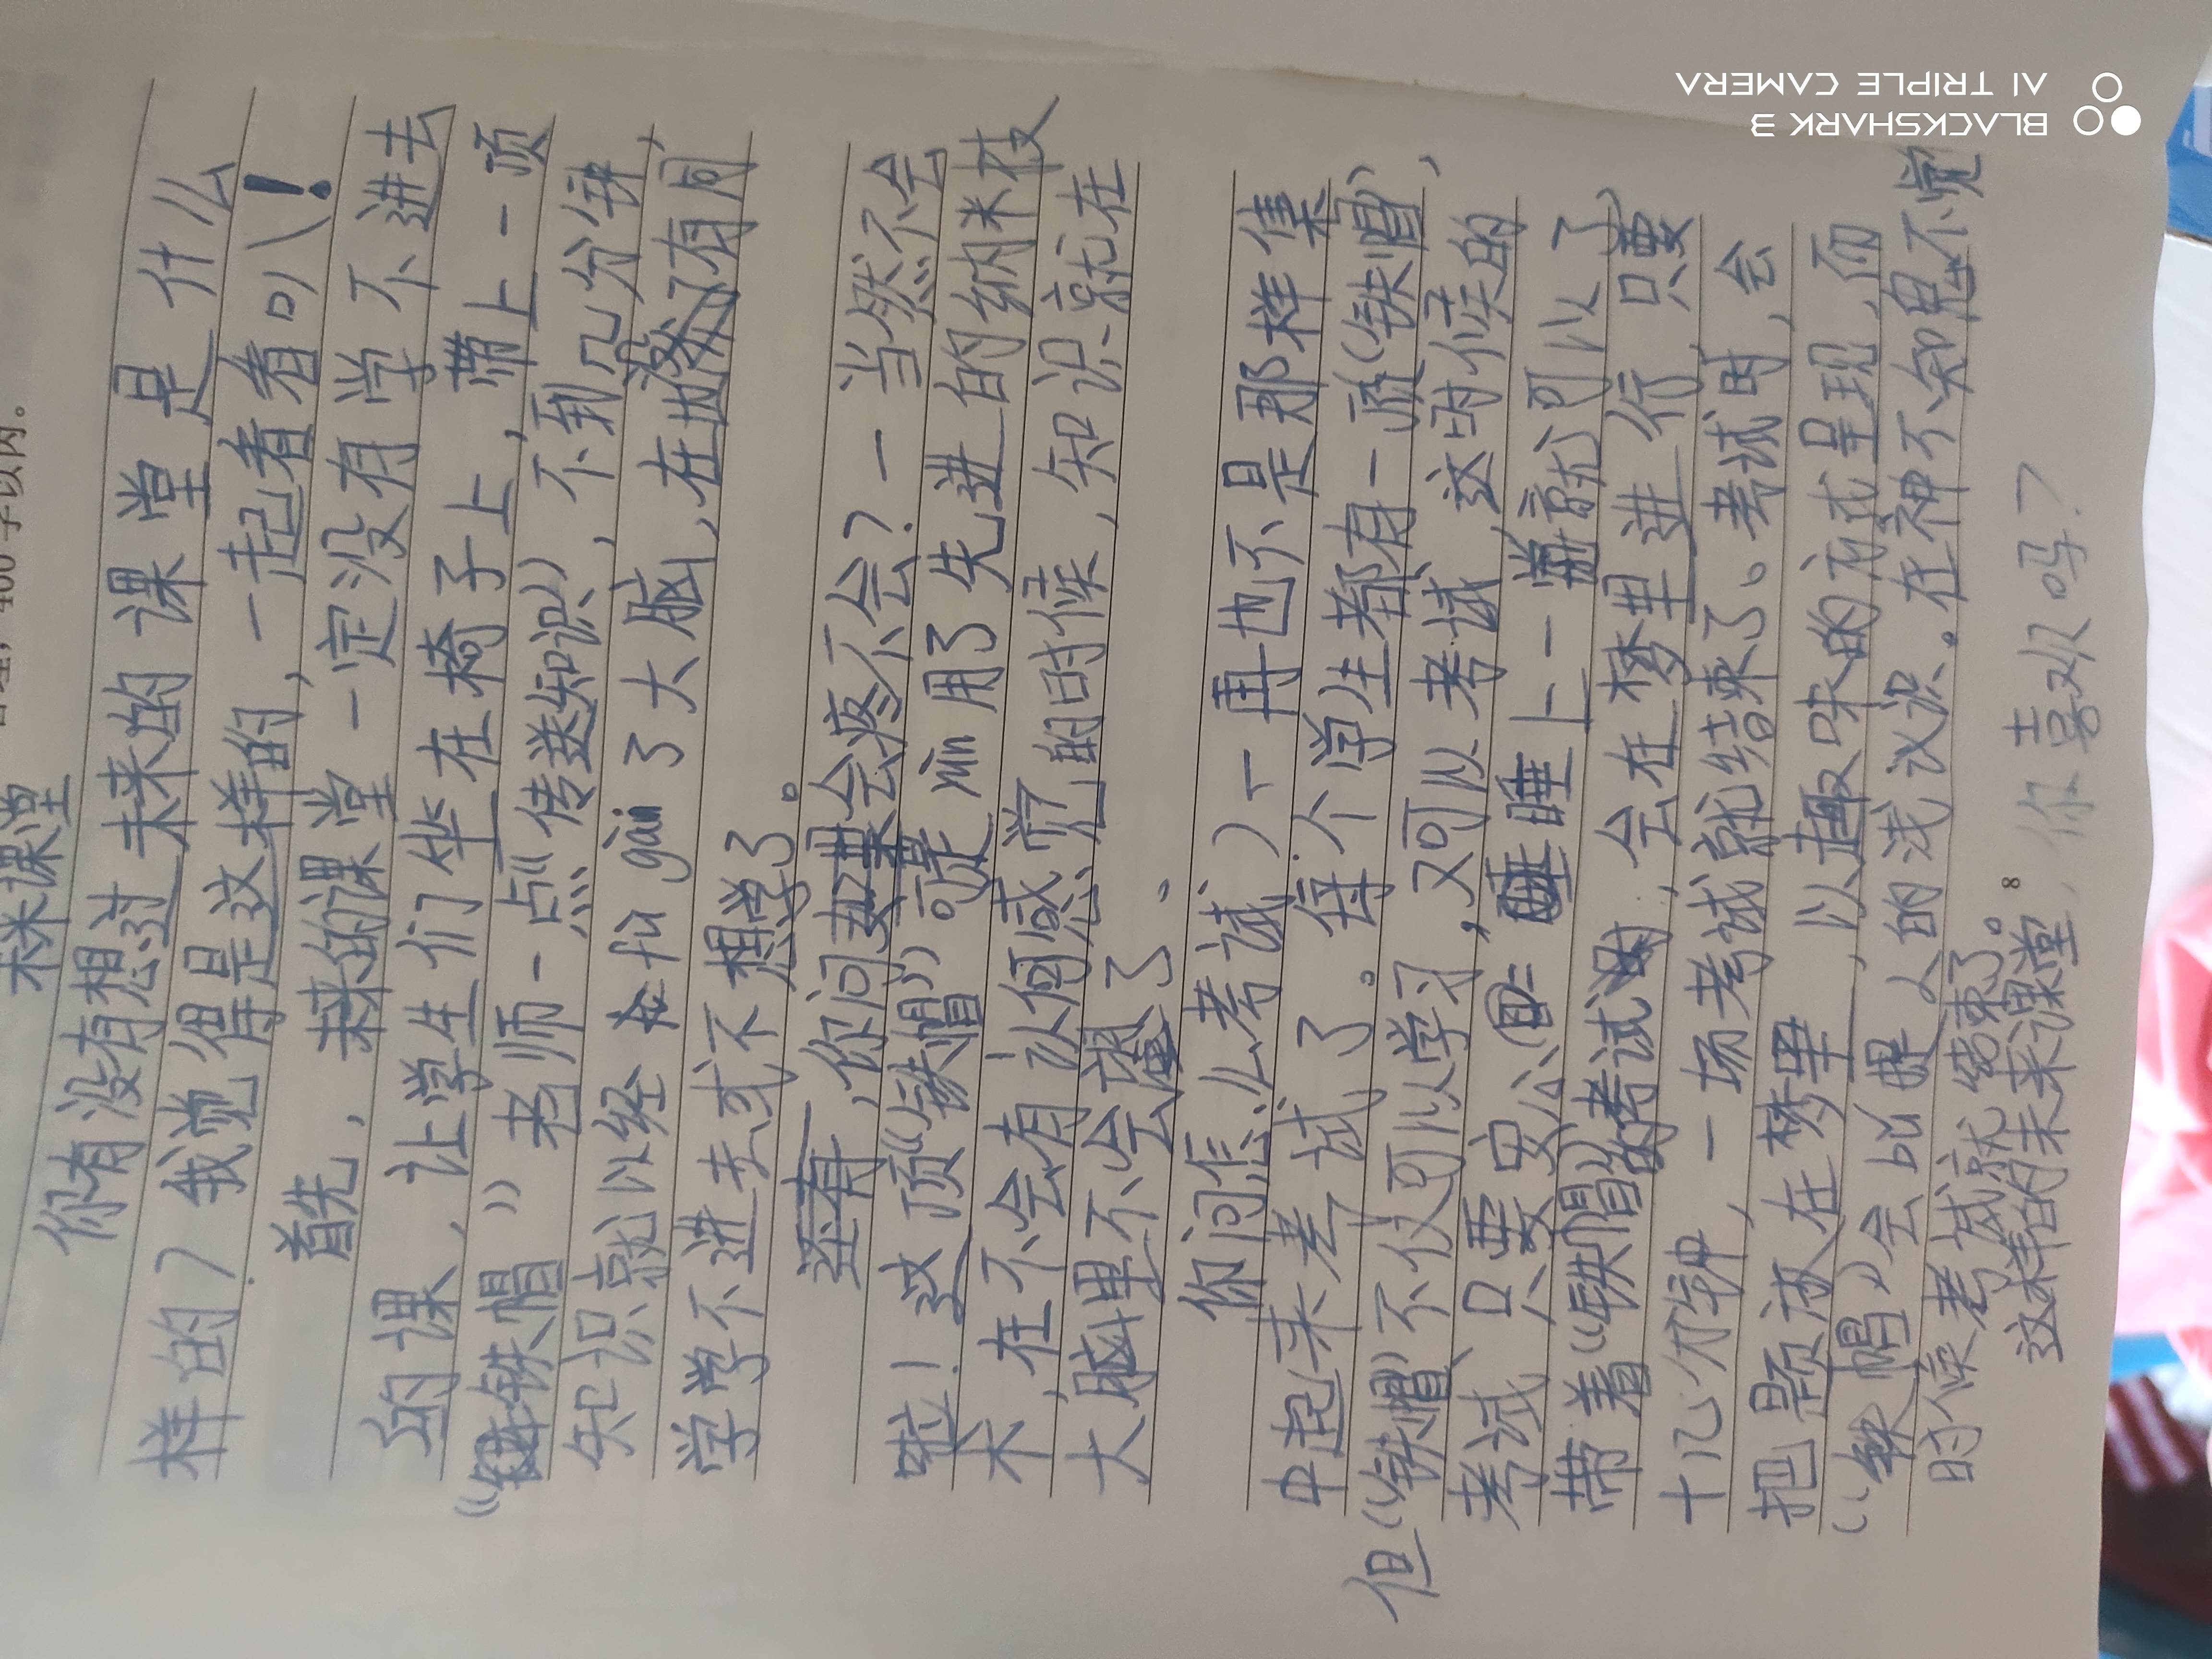 400字以内。
未来课堂
你有没有想过未来的课堂是什么
样的？我觉得是这样的，一起看看叭！
首先，未来的课堂一定没有学不进去
的课，让学生们坐在椅子上，带上一顶
“铁帽”老师一点“传送知识”，不到几分钟，
知识就以经fù gài了大脑，在也没有同
学学不进去或不想学了。
你问会疼不会？一当然不会
啦！这顶“铁帽”可是yùn用了先进的纳米技
术，在不会有认何感觉的时候，知识就在
大脑里不会散了。
你问怎么考试？一再也不是那样集
中起来考试了。每个学生都有一顶“铁帽”，
但“铁帽”不仅可以学习，又可以考试，这时候的
考试、只要安心睡上一觉就可以了，
带着“铁帽”的考试，会在梦里进行，只要
十几分钟，一场考试就结束了。考试时，会
把题放在梦里，以趣味的方式呈现，而
“铁帽”会bǔ捉人的浅议识。在神不知鬼不觉
的时候考试就结束了。
8
这样的未来课堂，你喜欢吗？
BLACKSHARK 3
AI TRIPLE CAMERA